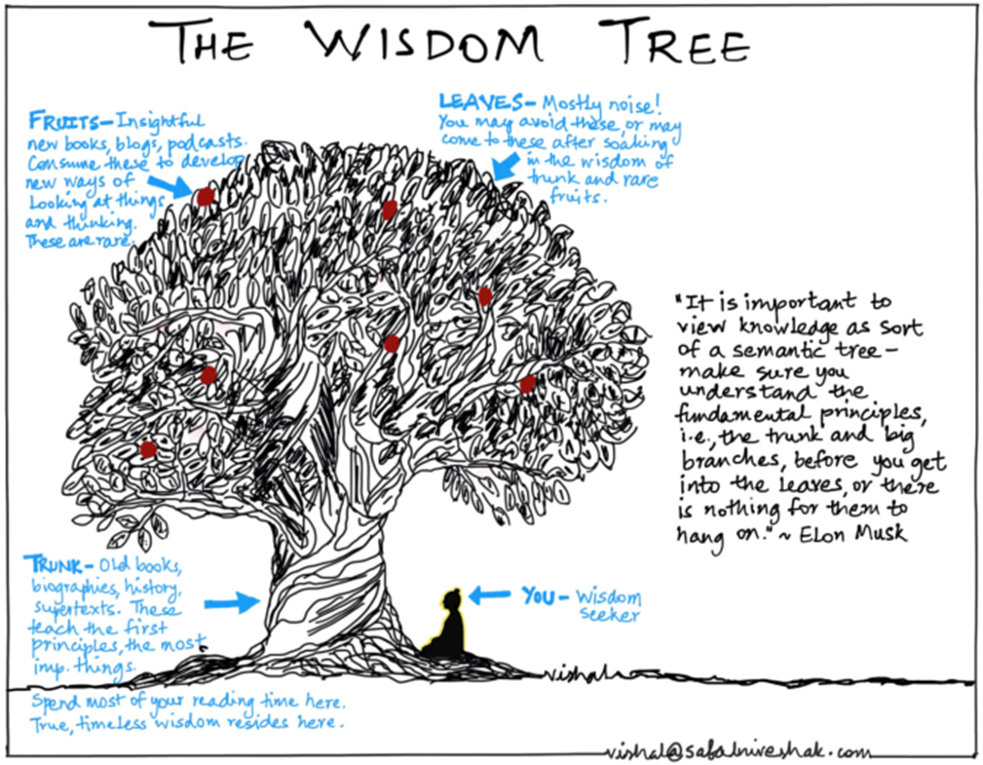 THE WISDOM TREE
FRUITS – Insightful
new books, blogs, podcasts.
Consume these to develop
new ways of
Looking at things
and thinking.
These are rare.
LEAVES – Mostly noise!
You may avoid these, or may
come to these after soaking
in the wisdom of
trunk and rare
fruits.
"It is important to
view knowledge as sort
of a semantic tree –
make sure you
understand the
fundamental principles,
i.e., the trunk and big
branches, before you get
into the leaves, or there
is nothing for them to
hang on." ~ Elon Musk
TRUNK – Old books,
biographies, history,
supertexts. These
teach the first
principles, the most
imp. things.
Spend most of your reading time here.
True, timeless wisdom resides here.
YOU – Wisdom
seeker
vishal
vishal@safalniveshak.com